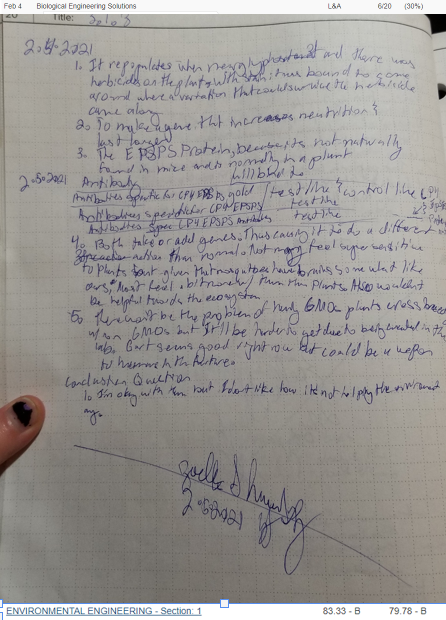 Feb 4 Biological Engineering Solutions L&A 6/20 (30%)
20 Title: 3.1.3
2.4.2021
1. It repopulates when glyphosate and there was
herbicides on the plants with strain it was bound to
around where a variation that could survive the
came along
2. To make a gene that increases neutrition &
last longer
3. The EPSPS Protein, because its not naturally
found in mice and is normally in a plant
2.5.2021 Antibody will bind to
Antibodies specific for CP4 EPSPS gold test line control line
Antibodies specific for CP4 EPSPS test line
Antibodies CP4 EPSPS Antibodies test line
4. Both take or add genes, Thus causing it to do a different
action than normal. Not feel super sensitive
to plants but given that mosquitoes have somewhat like
ours, I feel a bit more than plants. Also wouldn't
be helpful towards the ecosystem
5. There won't be the problem of having GMO plants cross breed
w/ non GMOs but it'll be harder to get due to being in the
lab. seems good right now but could be a weapon
to in the future.
Conclusion Question
1. I'm okay with them but I don't like how it's not helping the environment
any.
2.5.2021
ENVIRONMENTAL ENGINEERING - Section: 1 83.33 - B 79.78 - B